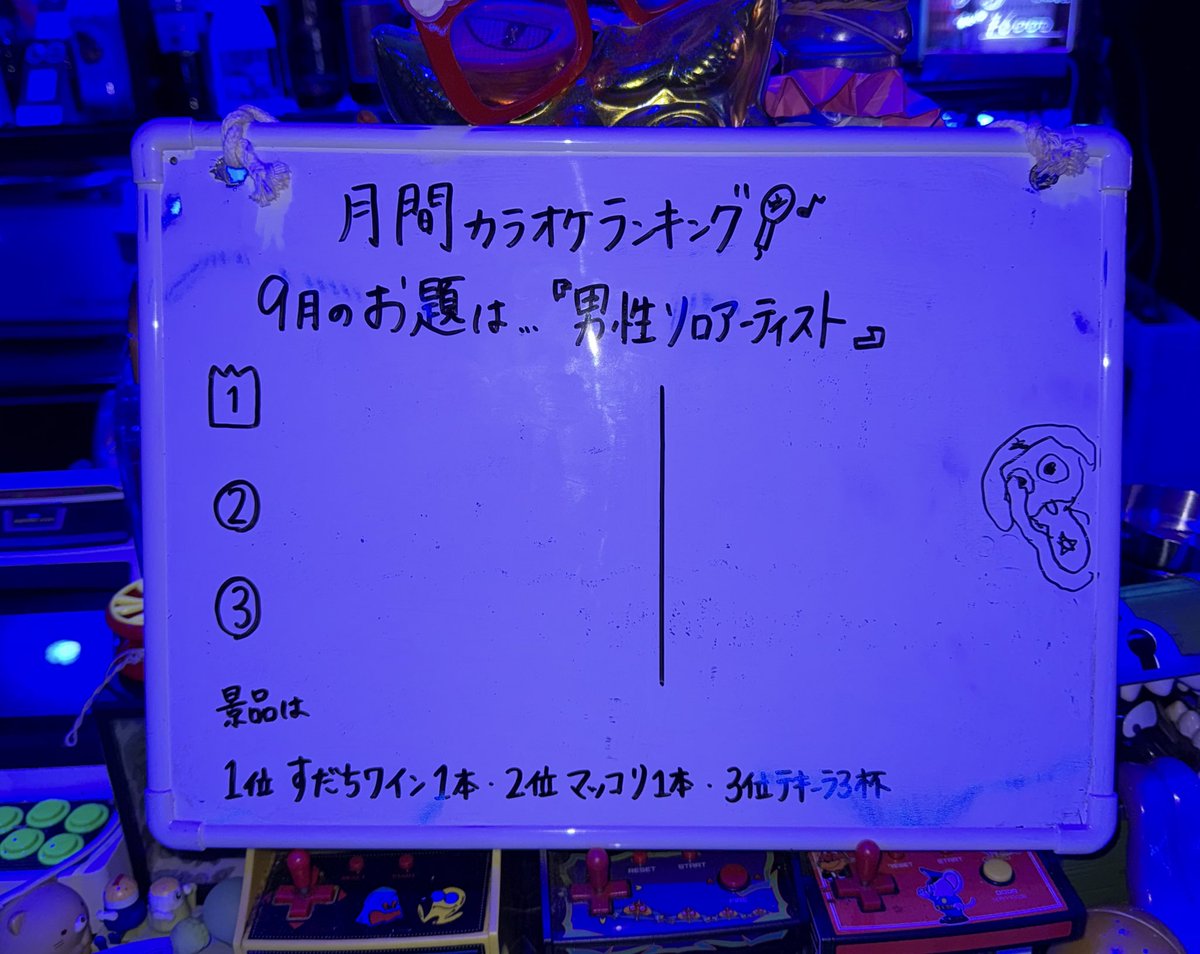 月間カラオケランキング
9月のお題は…『男性ソロアーティスト』
1
②
③
景品は
1位 すだちワイン1本・2位 マッコリ1本・3位テキーラ3杯
RESET START
START